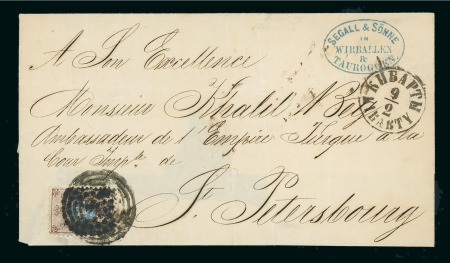 SEGALL & SÖHNE
IN
WIRBALLEN
&
TAUROGGEN.
A Son Excellence
Monsieur Khalil Bey
Ambassadeur de l'Empire Turque a la
Cour Imp^le de
St. Petersbourg
КИБАРТЫ
9
2